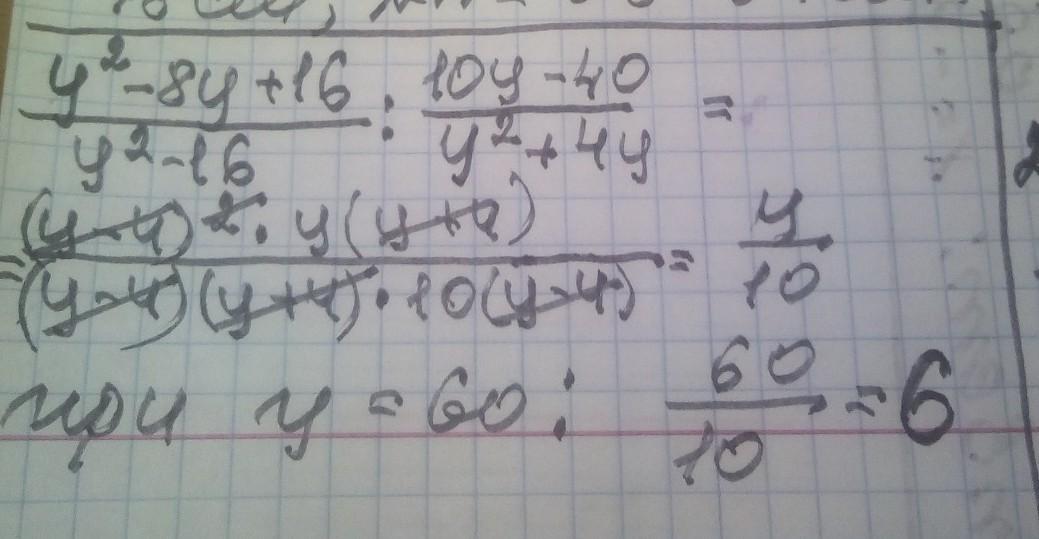 y² - 8y + 16 / y² - 16 : 10y - 40 / y² + 4y =
= (y - 4)² · y(y + 4) / (y - 4)(y + 4) · 10(y - 4) = y / 10
при y = 60: 60 / 10 = 6